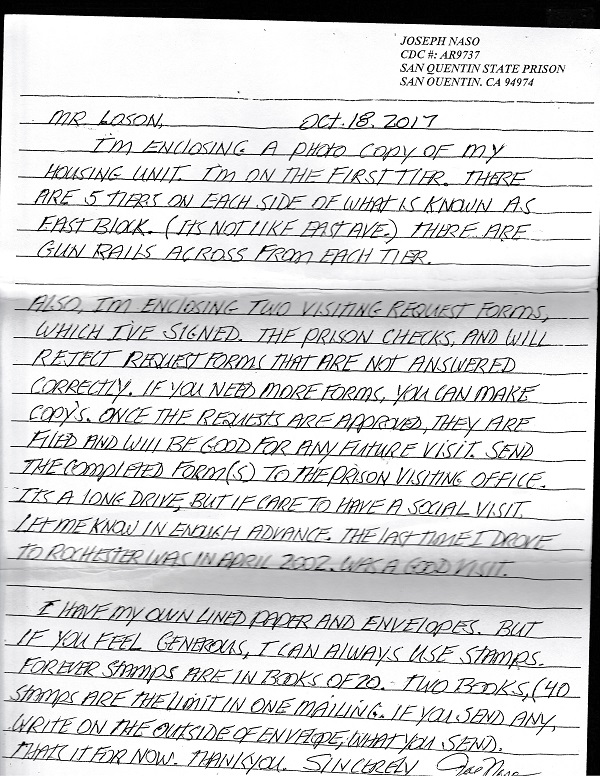 JOSEPH NASO
CDC #: AR9737
SAN QUENTIN STATE PRISON
SAN QUENTIN. CA 94974
MR. LOSON, OCT. 18, 2017
I'M ENCLOSING A PHOTO COPY OF MY
HOUSING UNIT. I'M ON THE FIRST TIER. THERE
ARE 5 TIERS ON EACH SIDE OF WHAT IS KNOWN AS
EAST BLOCK. (ITS NOT LIKE EAST AVE.) THERE ARE
GUN RAILS ACROSS FROM EACH TIER.
ALSO, I'M ENCLOSING TWO VISITING REQUEST FORMS,
WHICH I'VE SIGNED. THE PRISON CHECKS, AND WILL
REJECT REQUEST FORMS THAT ARE NOT ANSWERED
CORRECTLY. IF YOU NEED MORE FORMS, YOU CAN MAKE
COPY'S. ONCE THE REQUESTS ARE APPROVED, THEY ARE
FILED AND WILL BE GOOD FOR ANY FUTURE VISIT. SEND
THE COMPLETED FORM(S) TO THE PRISON VISITING OFFICE.
ITS A LONG DRIVE, BUT IF CARE TO HAVE A SOCIAL VISIT.
LET ME KNOW IN ENOUGH ADVANCE. THE LAST TIME I DROVE
TO ROCHESTER WAS IN APRIL 2002. WAS A GOOD VISIT.
I HAVE MY OWN LINED PAPER AND ENVELOPES. BUT
IF YOU FEEL GENEROUS, I CAN ALWAYS USE STAMPS.
FOREVER STAMPS ARE IN BOOKS OF 20. TWO BOOKS, (40
STAMPS ARE THE LIMIT IN ONE MAILING. IF YOU SEND ANY,
WRITE ON THE OUTSIDE OF ENVELOPE, WHAT YOU SEND.
THATS IT FOR NOW. THANKYOU. SINCERELY Joe Naso